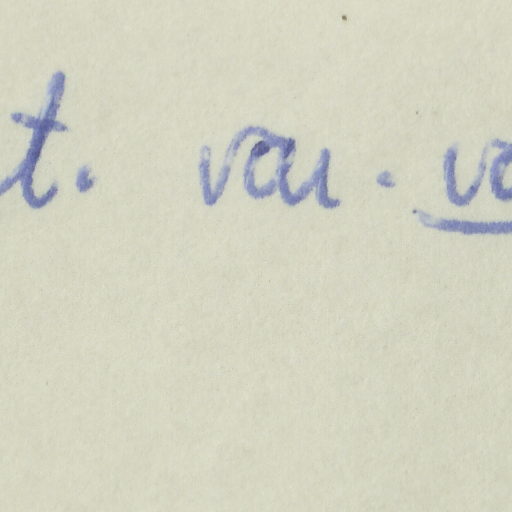 t. var. va